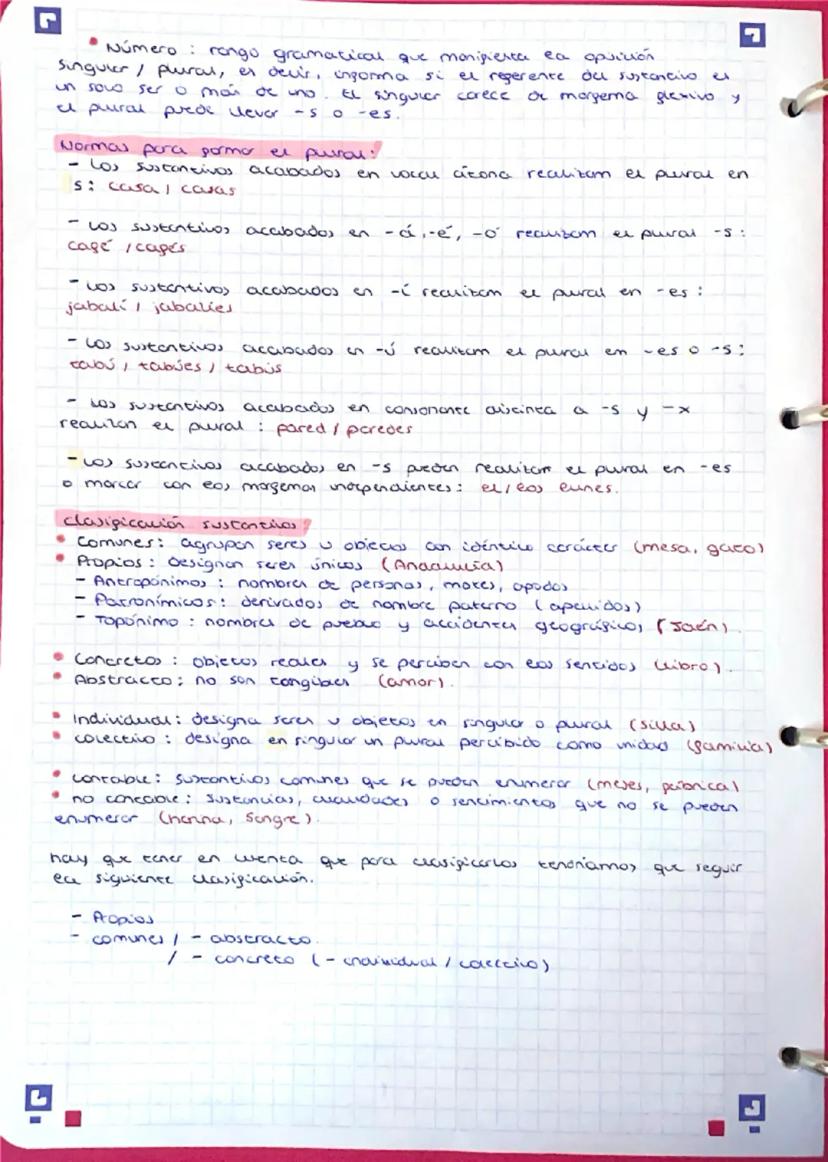 • Número : rango gramatical que manifiesta la oposición
singular / plural, es decir, informa si el referente del sustantivo es
un solo ser o más de uno. El singular carece de morfema flexivo y
el plural puede llevar -s o -es.
Normas para formar el plural:
- Los sustantivos acabados en vocal átona realizan el plural en
s: casa / casas
- Los sustantivos acabados en -á, -é, -ó realizan el plural -s :
café / cafés
- Los sustantivos acabados en -í realizan el plural en -es :
jabalí / jabalíes
- Los sustantivos acabados en -ú realizan el plural en -es o -s :
tabú / tabúes / tabús
- Los sustantivos acabados en consonante distinta a -s y -x
realizan el plural : pared / paredes
- Los sustantivos acabados en -s pueden realizar el plural en -es
o marcar con los morfemas independientes: el / los lunes.
Clasificación sustantivos:
• Comunes: agrupan seres u objetos con idéntico carácter (mesa, gato)
• Propios: Designan seres únicos (Andalucía)
- Antropónimos : nombres de personas, motes, apodos
- Patronímicos: derivados de nombre paterno (apellidos)
- Topónimo : nombres de pueblo y accidentes geográficos (Jaén).
• Concretos : objetos reales y se perciben con los sentidos (libro).
• Abstracto: no son tangibles (amor).
• Individual: designa seres u objetos en singular o plural (silla)
• colectivo : designa en singular un plural percibido como unidad (familia)
• contable: sustantivos comunes que se pueden enumerar (meses,
• no contable: sustancias, cualidades o sentimientos que no se pueden
enumerar (harina, sangre).
hay que tener en cuenta que para clasificarlos tendríamos que seguir
la siguiente clasificación.
- Propios
- comunes / - abstracto.
/ - concreto (- individual / colectivo)